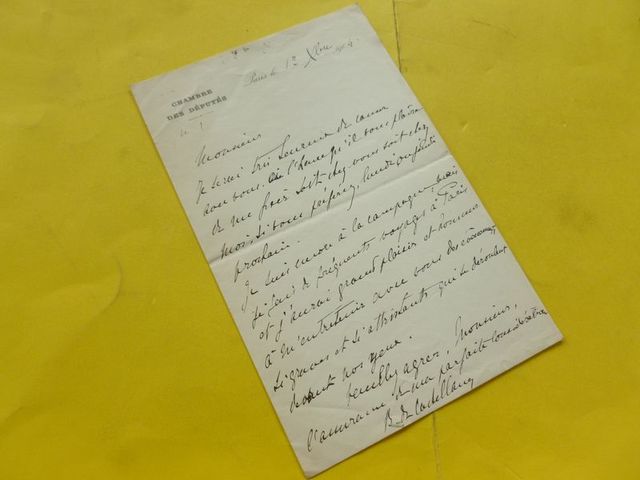 CHAMBRE
DES DÉPUTÉS
Paris le 12 Xbre
Monsieur
Je serai très heureux de causer
avec vous. à l'heure qu'il vous plaira
de me fixer soit chez vous soit chez
moi, si vous préférez, lundi ou
prochain.
Je suis encore à la campagne, mais
je fais de fréquents voyages à Paris
et j'aurai grand plaisir et honneur
à m'entretenir avec vous des évènements
si graves et si attristants qui se déroulent
devant nos yeux.
Veuillez agréer, Monsieur,
l'assurance de ma parfaite considération
B. de Castellane